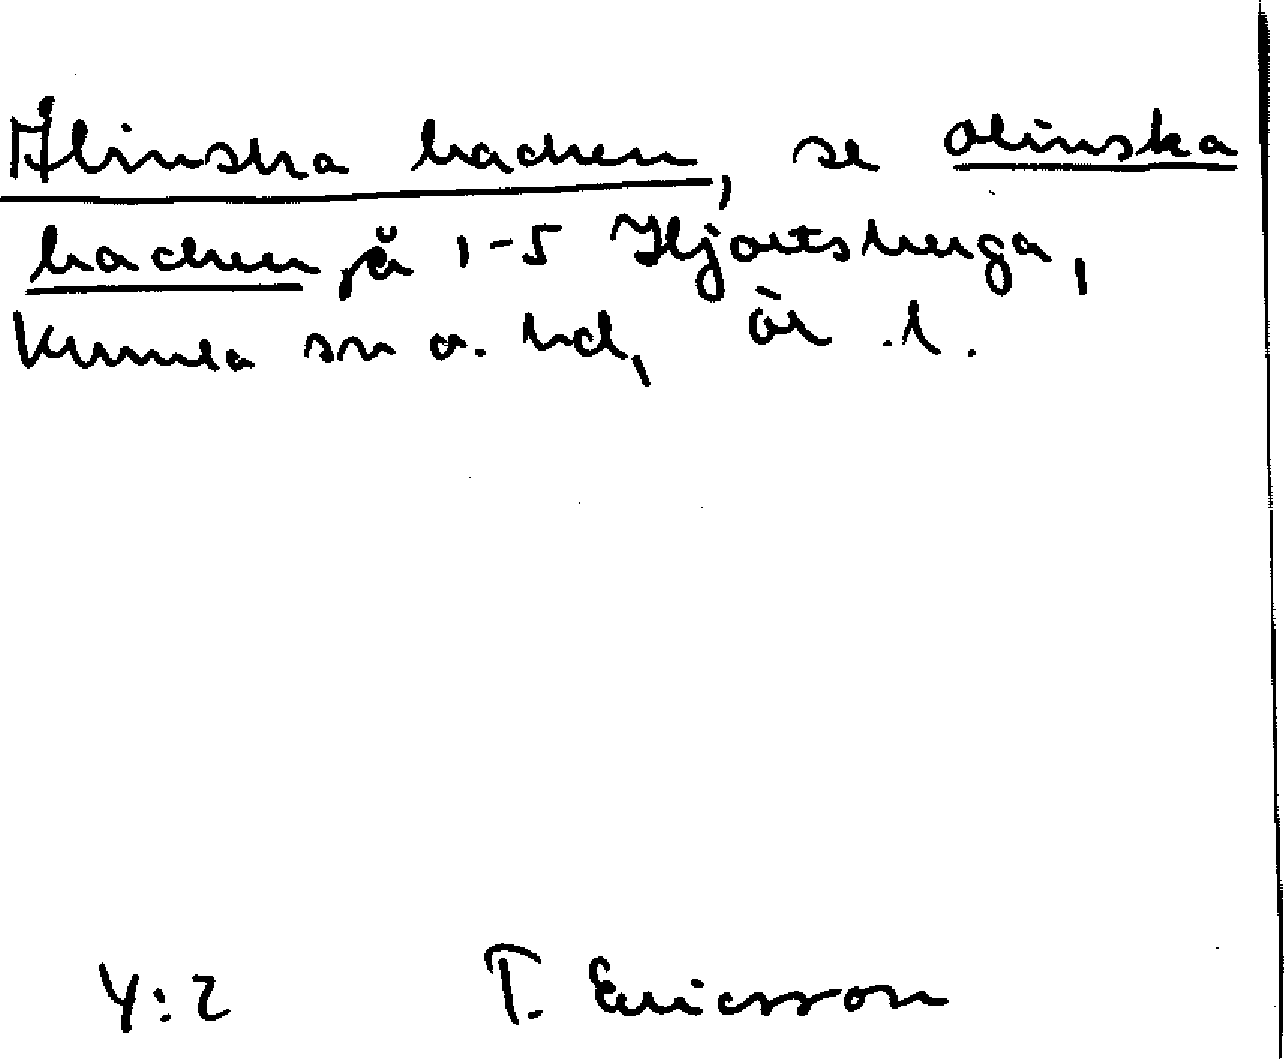 Ålinska backen, se Olinska
backen på 1-5 Hjortsberga,
Kumla sn o. hd, Ör. l.
Y:2 T. Ericsson